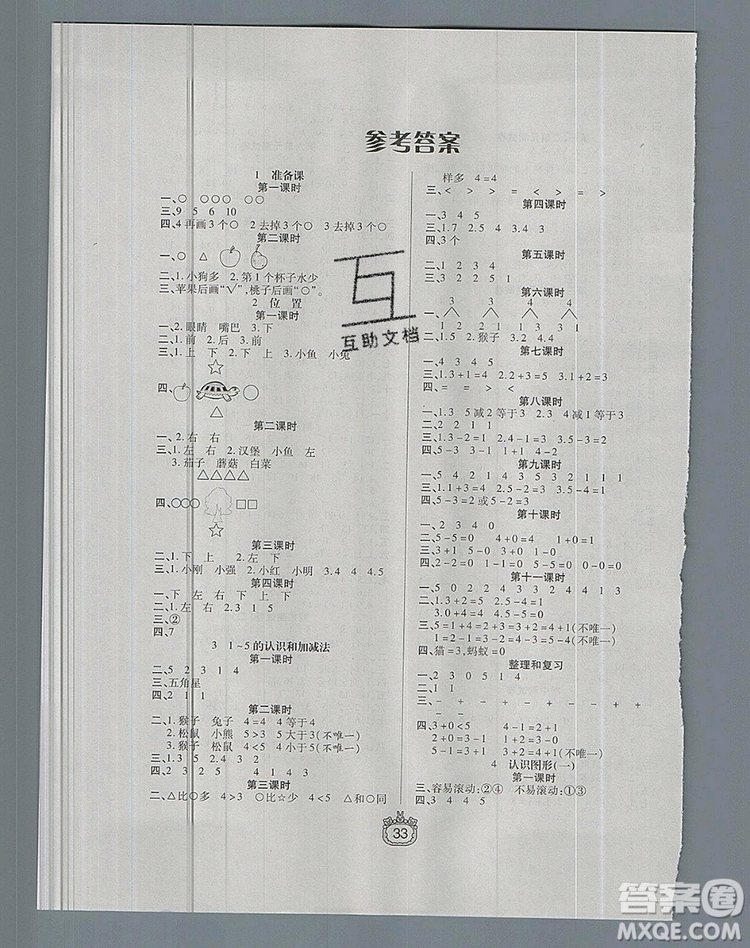 参考答案
1 准备课
第一课时
一、○ ○○ ○○○ ○○○○
三、9 5 6 10
四、4 再画3个○ 2 去掉3个○ 3 去掉3个○
第二课时
一、○ △
二、1.小狗多 2.第1个杯子水少
三、苹果后画“√”,桃子后画“○”。
2 位置
第一课时
一、2.眼睛 嘴巴 3.下
二、1.前 2.后
三、1.上 下 2.上 下 3.小鱼 小兔
☆
四、 ○
△
第二课时
一、2.右 右
三、1.左 右 2.汉堡 小鱼 左
3.茄子 蘑菇 白菜
△△△△
四、○○○ □□
☆
第三课时
二、1.下 上 2.下 上
三、1.小刚 小强 2.小红 小明 3.4 4.5
第四课时
一、下 左 右 下 下 右
二、1.左 右 2.3 1 5
三、②
四、7
3 1~5的认识和加减法
第一课时
二、5 2 3 1 4
三、五角星
四、2 1 1
第二课时
一、1.猴子 兔子 4=4 4等于4
2.松鼠 小熊 5>3 5大于3(不唯一)
3.猴子 松鼠 4<5 4小于5(不唯一)
三、1.3 5 2 4 2.5 4 3 2
四、3 5
第三课时
二、△比○多 4>3 ○比☆少 4<5 △和○同
样多 4=4
三、< > > = < = >
第四课时
一、3 4 5
三、1.7 2.5 4 3.5 4.3
四、3个
第五课时
二、1 2 3 4
三、3 2 2 5 1
第六课时
3 3 4 4
一、
1 2 1 2 1 3 1 3
二、1.4 2.猴子 3.2 4.4
第七课时
一、4 3 4 5 5
三、1.3+1=4 2.3+2=5
四、= = > <
第八课时
一、1.3 5减2等于3 2.3 4 3
二、2 2 1 1
三、1.3-2=1 2.5-4=1
四、5-3=2 5-2=3
第九课时
二、4 5 2 1 4 2 3 5 3 2 1 1
三、1.1+3=4 2.3-1=2
四、5-3=2或5-2=3
第十课时
一、2 3 4 0
二、5-5=0 4+0=4
四、2-2=0 5-5=0
第十一课时
一、5 0 2 2 4 3 3 4 4 4
二、1.3+2=5 2.5-4=1
3.0+4=4 4.5-0=5
三、5-1=4 3+1=4 5-4=1(不唯一)
1=2-1=3-2=4-3=5-4(不唯一)
四、猫=3,蚂蚁=0
整理和复习
一、2 3 0 5 1 4
三、- + + - + - + - +
- + - +
四、3+0<5 4-1=2+1
2+0=3-1 0+0=5-5
5-2=1+2 3+2>4(不唯一)
4 认识图形(一)
第一课时
三、容易滚动:②④ 不易滚动:①③
四、3 4 4 5
33
互助文档
答案圈
MXQE.COM